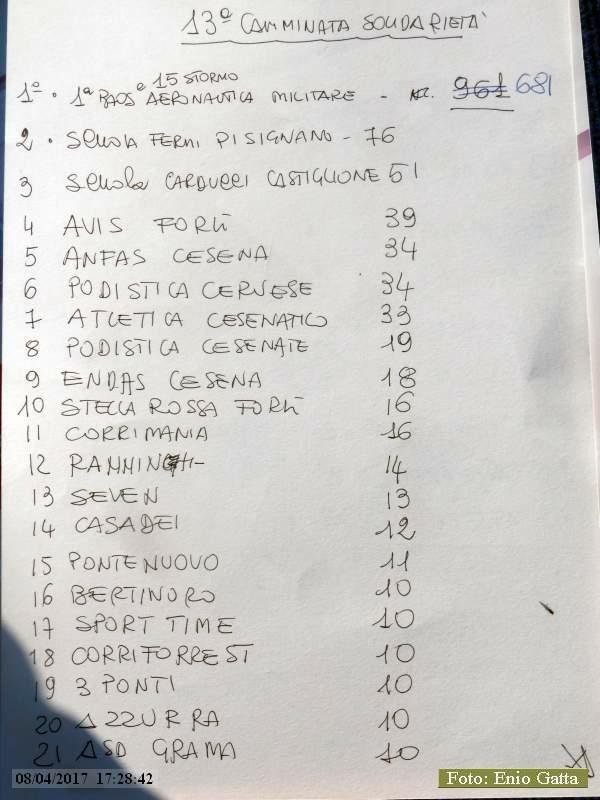 13° CAMMINATA SOLIDARIETA'
15 STORMO
1° · 1ª BAOS e AERONAUTICA MILITARE - 961 681
2 · Scuola FERMI PISIGNANO - 76
3 Scuola CARDUCCI CASTIGLIONE 51
4 AVIS FORLÌ 39
5 ANFAS CESENA 34
6 PODISTICA CERVESE 34
7 ATLETICA CESENATICO 33
8 PODISTICA CESENATE 19
9 ENDAS CESENA 18
10 STELLA ROSSA FORLÌ 16
11 CORRIMANIA 16
12 14
13 SEVEN 13
14 CASADEI 12
15 PONTENUOVO 11
16 BERTINORO 10
17 SPORT TIME 10
18 CORRIFORREST 10
19 3 PONTI 10
20 AZZURRA 10
21 ASD GRAMA 10
08/04/2017 17:28:42
Foto: Enio Gatta